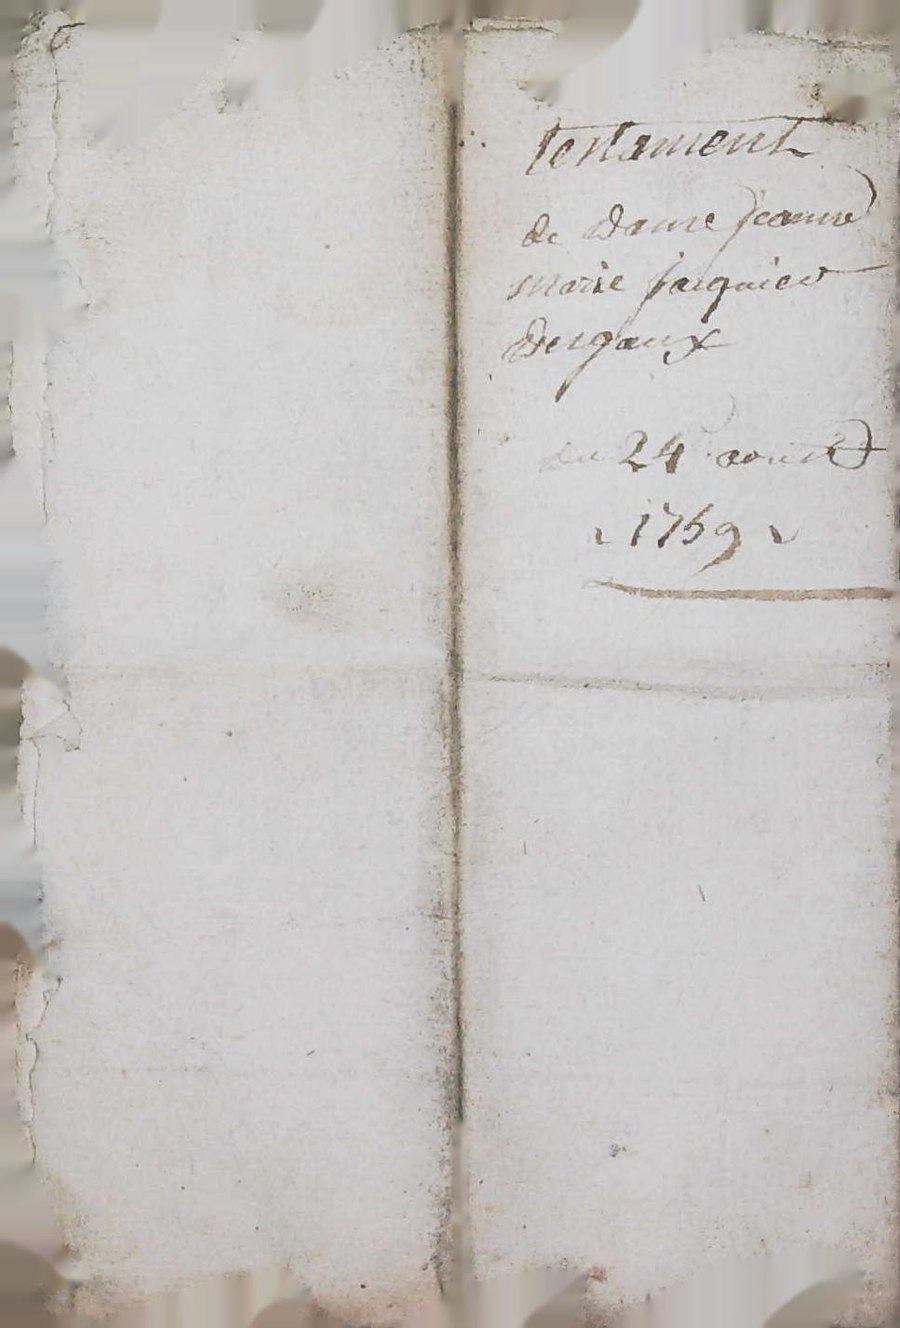 testament
de dame jeanne
marie
du 24 aoust
1759